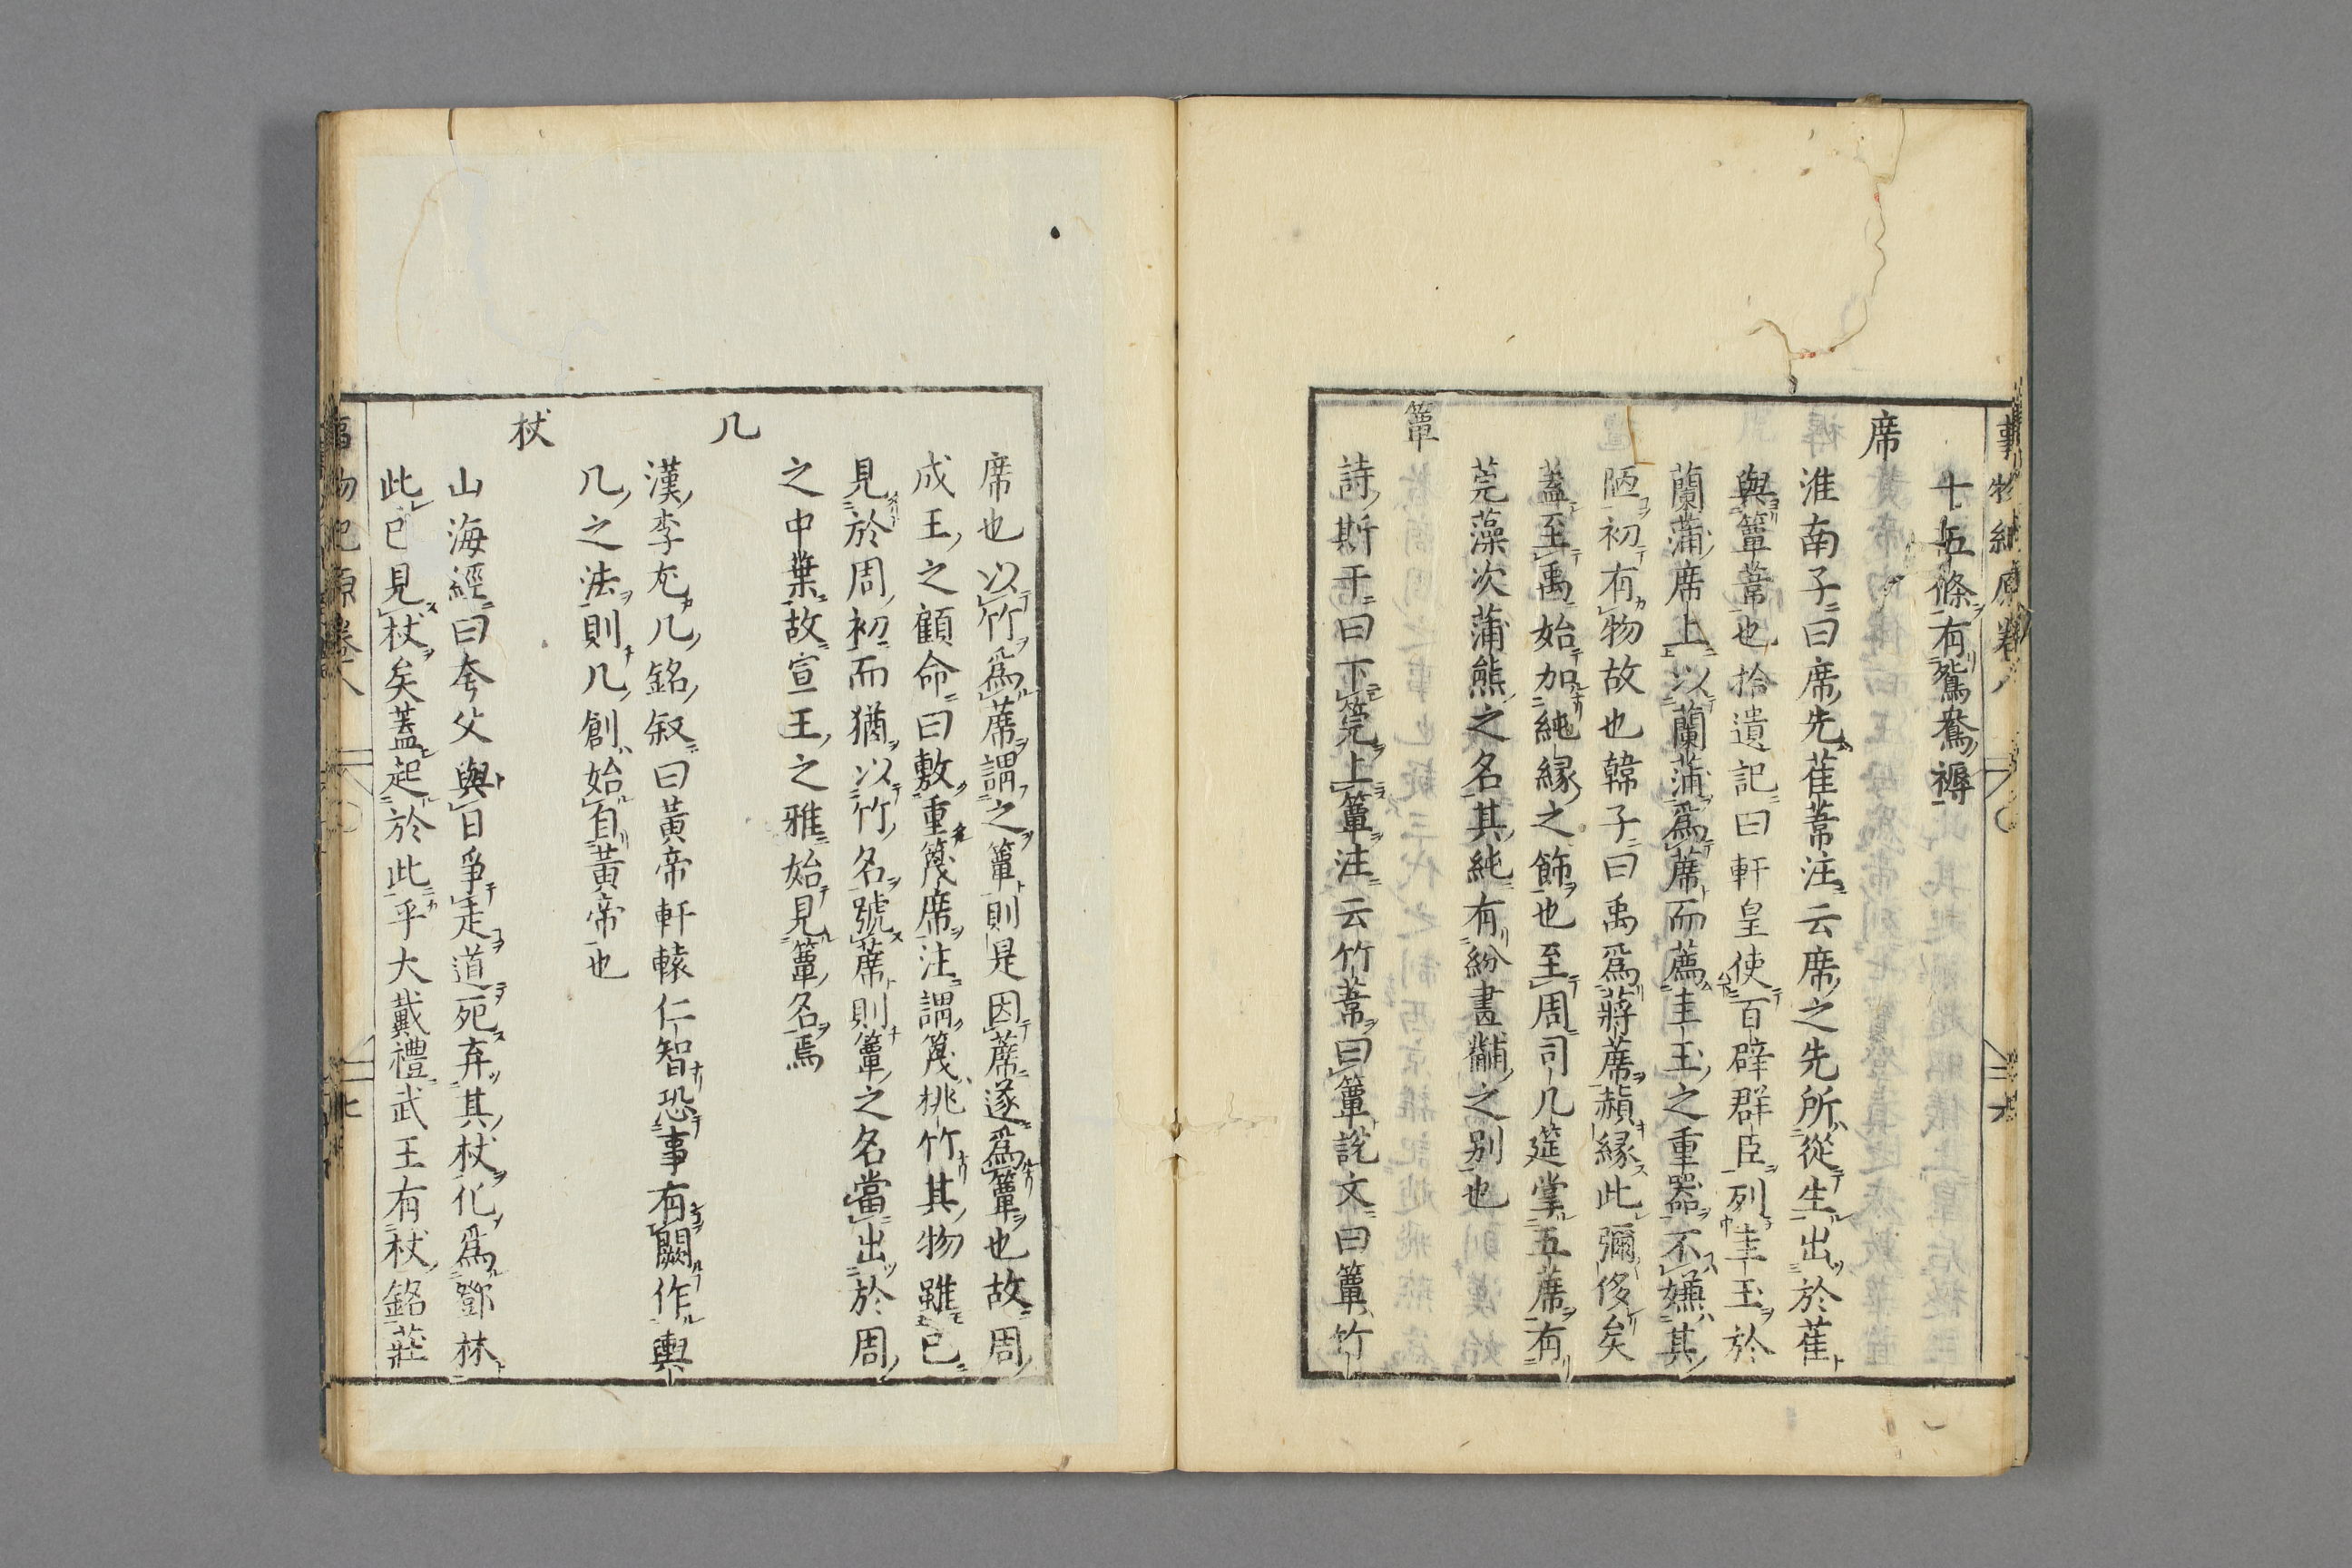 事物紀原卷八
十五條有鴛鴦褥
席
淮南子曰席先萑葦注云席之先所從生出於萑
與簟葦也拾遺記曰軒皇使百辟群臣列圭玉於
蘭蒲席上以蘭蒲爲席而薦圭玉之重器不嫌其
陋初有物故也韓子曰禹爲蔣席頳緣此彌侈矣
蓋至禹始加純緣之飾也至周司几筵掌五席有
莞藻次蒲熊之名其純有紛畫黼之別也
簟
詩斯干曰下筦上簟注云竹葦曰簟說文曰簟竹
席也以竹爲席謂之簟則是因席遂爲簟也故周
成王之顧命曰敷重篾席注謂篾桃竹其物雖已
見於周初而猶以竹名號席則簟之名當出於周
之中葉故宣王之雅始見簟名焉
几
漢李尤几銘叙曰黃帝軒轅仁智恐事有闕作輿
几之法則几創始自黃帝也
杖
山海經曰夸父與日爭走道死弃其杖化爲鄧林
此已見杖矣蓋起於此乎大戴禮武王有杖銘莊
物紀原卷八
七